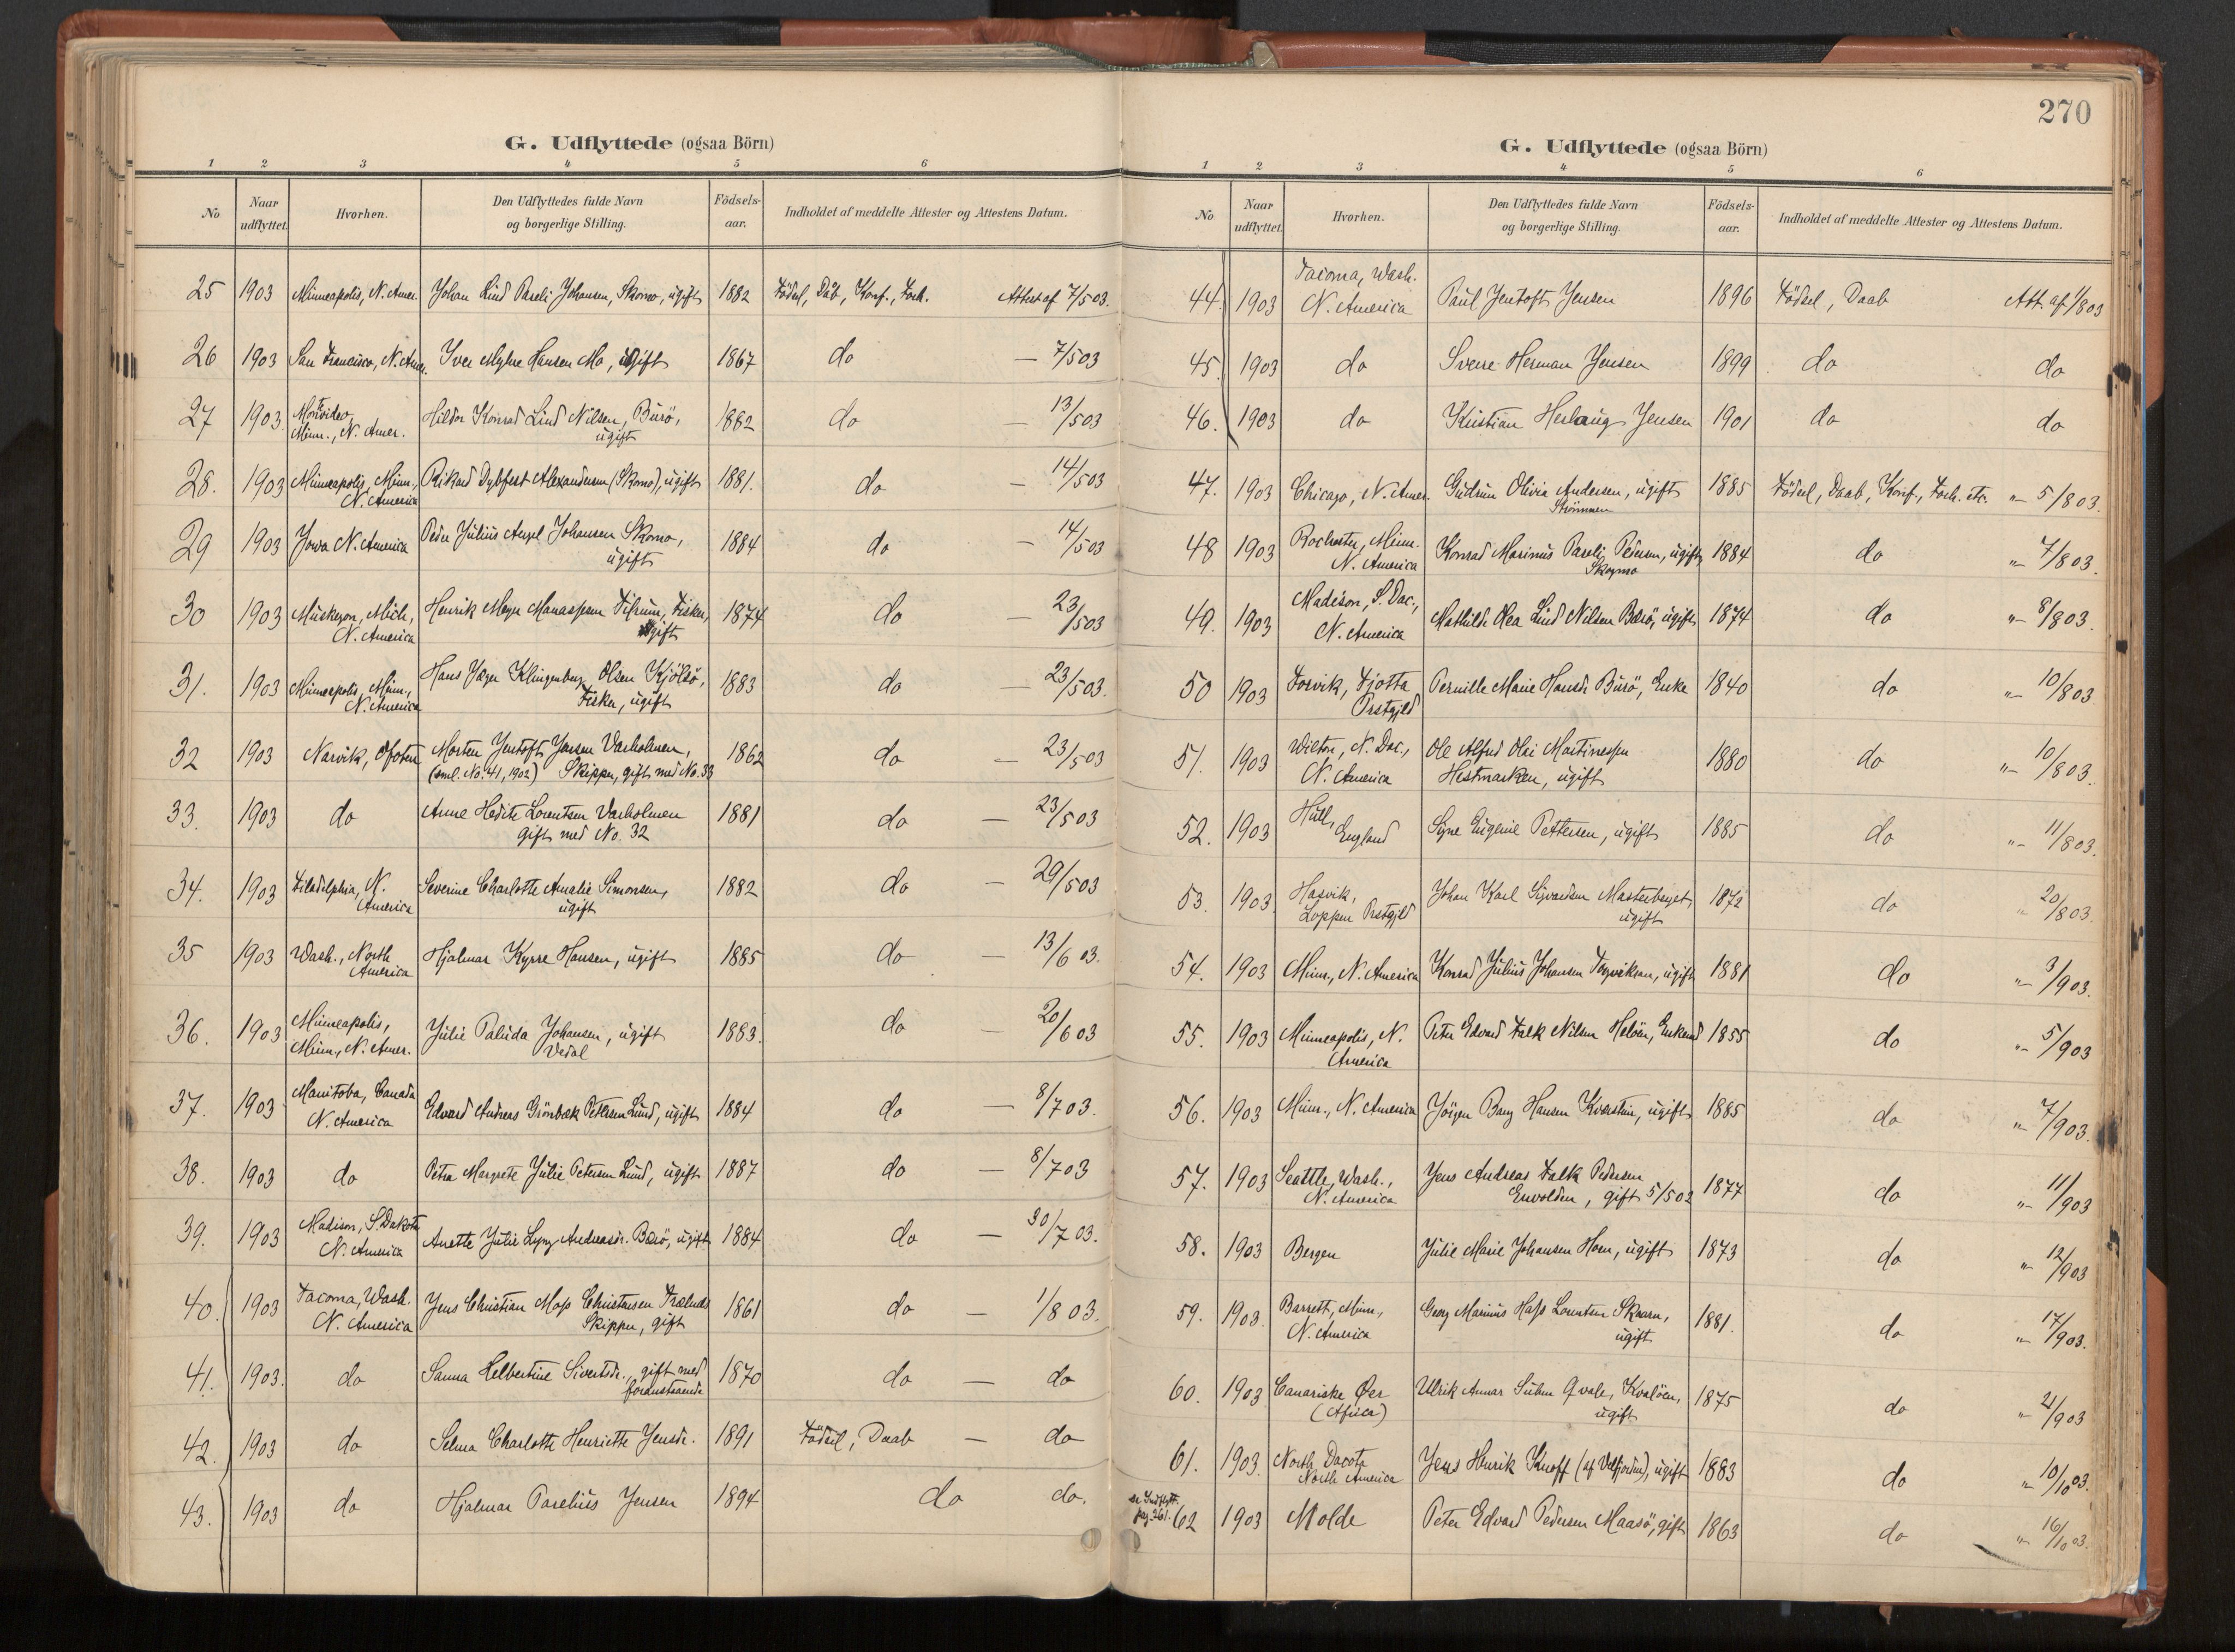 270
G. Udflyttede (ogsaa Börn)
1 2 3 4 5 6
No Naar udflyttet. Hvorhen. Den Udflyttedes fulde Navn og borgerlige Stilling. Födsels-aar. Indholdet af meddelte Attester og Attestens Datum.
25 1903 Minneapolis, N. Amer. Johan Lind Pareli Johansen, Skomo, ugift 1882 Födsel, Daab, Konf., Forh. Attest af 7/5 03.
26 1903 San Francisco, N. Amer. Iver Myhre Hansen Mo, ugift 1867 do — 7/5 03
27 1903 Montevideo,
Minn., N. Amer. Hildor Konrad Lind Nilsen, Burö,
ugift 1882 do — 13/5 03
28. 1903 Minneapolis, Minn.,
N. America Rikard Dybfest Alexandersen (Skomo), ugift 1881. do — 14/5 03
29 1903 Jowa N. America Peder Julius Angel Johansen Skomo,
ugift 1884 do — 14/5 03
30 1903 Muskegon, Mich.,
N. America Henrik Meyer Manassesen Fisker,
ugift 1874 do — 23/5 03
31. 1903 Minneapolis, Minn.,
N. America Hans Jæger Klingenberg Olsen Kjölsö,
Fisker, ugift 1883 do — 23/5 03.
32 1903 Narvik, Ofoten Morten Jentoft Jensen Varholmen,
(sml. No. 41, 1902) Skipper, gift med No. 33 1862 do — 23/5 03
33. 1903 do Anne Hedite Lorentsen Varholmen
gift med No. 32 1881 do — 23/5 03
34. 1903 Filadelphia, N.
America Severine Charlotte Amalie Simonsen,
ugift 1882 do — 29/5 03
35 1903 Wash., North
America Hjalmar Kyrre Hansen, ugift 1885 do — 13/6 03.
36. 1903 Minneapolis,
Minn., N. Amer. Julie Paluda Johansen, ugift
Vedal 1883. do — 20/6 03
37. 1903 Manitoba, Canada
N. America Edvard Andreas Grönbæk Pettersen Lund, ugift 1884 do — 8/7 03.
38. 1903 do Petra Margrete Julie Petersen Lund, ugift 1887 do — 8/7 03
39. 1903 Madison, S. Dakota
N. America Anette Julie Lyng Andreasdr. Bærö, ugift 1884 do — 30/7 03.
40. 1903 Tacoma, Wash.
N. America Jens Christian Moss Christensen Trælnes
Skipper, gift 1861 do — 1/8 03.
41. 1903. do Sanna Helbertine Sivertsdr., gift med
foranstaaende 1870 do — do
42. 1903 do Selma Charlotte Henriette Jensdr. 1891 Födsel, Daab — do
43. 1903 do Hjalmar Parelius Jensen 1894 do do.
G. Udflyttede (ogsaa Börn)
1 2 3 4 5 6
No Naar udflyttet. Hvorhen. Den Udflyttedes fulde Navn og borgerlige Stilling. Födsels-aar. Indholdet af meddelte Attester og Attestens Datum.
44. 1903 Tacoma, Wash.
N. America Paul Jentoft Jensen 1896 Födsel, Daab Att. af 1/8 03
45. 1903 do Sverre Herman Jensen 1899 do do
46. 1903 do Kristian Herlaug Jensen 1901 do do
47. 1903 Chicago, N. Amer. Gudrun Olivia Andersen, ugift
Strömmen 1885 Födsel, Daab, Konf., Forh. etc. „– 5/8 03.
48 1903 Rochester, Minn.
N. America Konrad Marinus Pareli Pedersen, ugift
Skogmo 1884 do „– 7/8 03.
49. 1903 Madison, S. Dac.,
N. America Mathilde Olea Lind Nilsen Bærö, ugift 1874 do „– 8/8 03.
50 1903 Forvik, Tjøtta
Prstgjld Pernille Marie Hansdr. Burö, Enke 1840 do „– 10/8 03
51. 1903 Wilton, N. Dac.,
N. America Ole Alfred Olai Martinessen
Hestmarken, ugift 1880 do „– 10/8 03.
52. 1903 Hull,
England Signe Eugenie Pettersen, ugift 1885 do „– 11/8 03.
53. 1903 Hasvik,
Loppen Prstgjld Johan Karl Sigvardsen Masterberget,
ugift 1872 do „ 20/8 03.
54. 1903 Minn., N. America Konrad Julius Johansen ugift 1881 do „– 3/9 03.
55. 1903 Minneapolis, N.
America Peter Edvard Falk Nilsen Helöen, Enkemd 1855 do „– 5/9 03
56. 1903 Minn., N. America Jörgen Bang Hansen ugift 1885 do „– 7/9 03.
57. 1903 Seattle, Wash.,
N. America Jens Andreas Falk Pedersen
Envolden, gift 5/5 02 1877 do „– 11/9 03
58. 1903 Bergen Julie Marie Johansen Horn, ugift 1873 do „– 12/9 03
59. 1903. Barrett, Minn.,
N. America Georg Marinus Hass Lorentsen
ugift 1881. do „– 17/9 03.
60. 1903 Canariske Øer
(Africa) Ulrik Annar Suhm Qvale, Kvalöen,
ugift 1875 do „– 21/9 03
61. 1903. North Dacota
North America Jens Henrik Knoff (af Velfjorden), ugift 1883 do „ 10/10 03.
se Indflytt.
pag. 261.
62 1903 Molde Peter Edvard Pedersen Maasö, gift 1863 do „– 16/10 03.